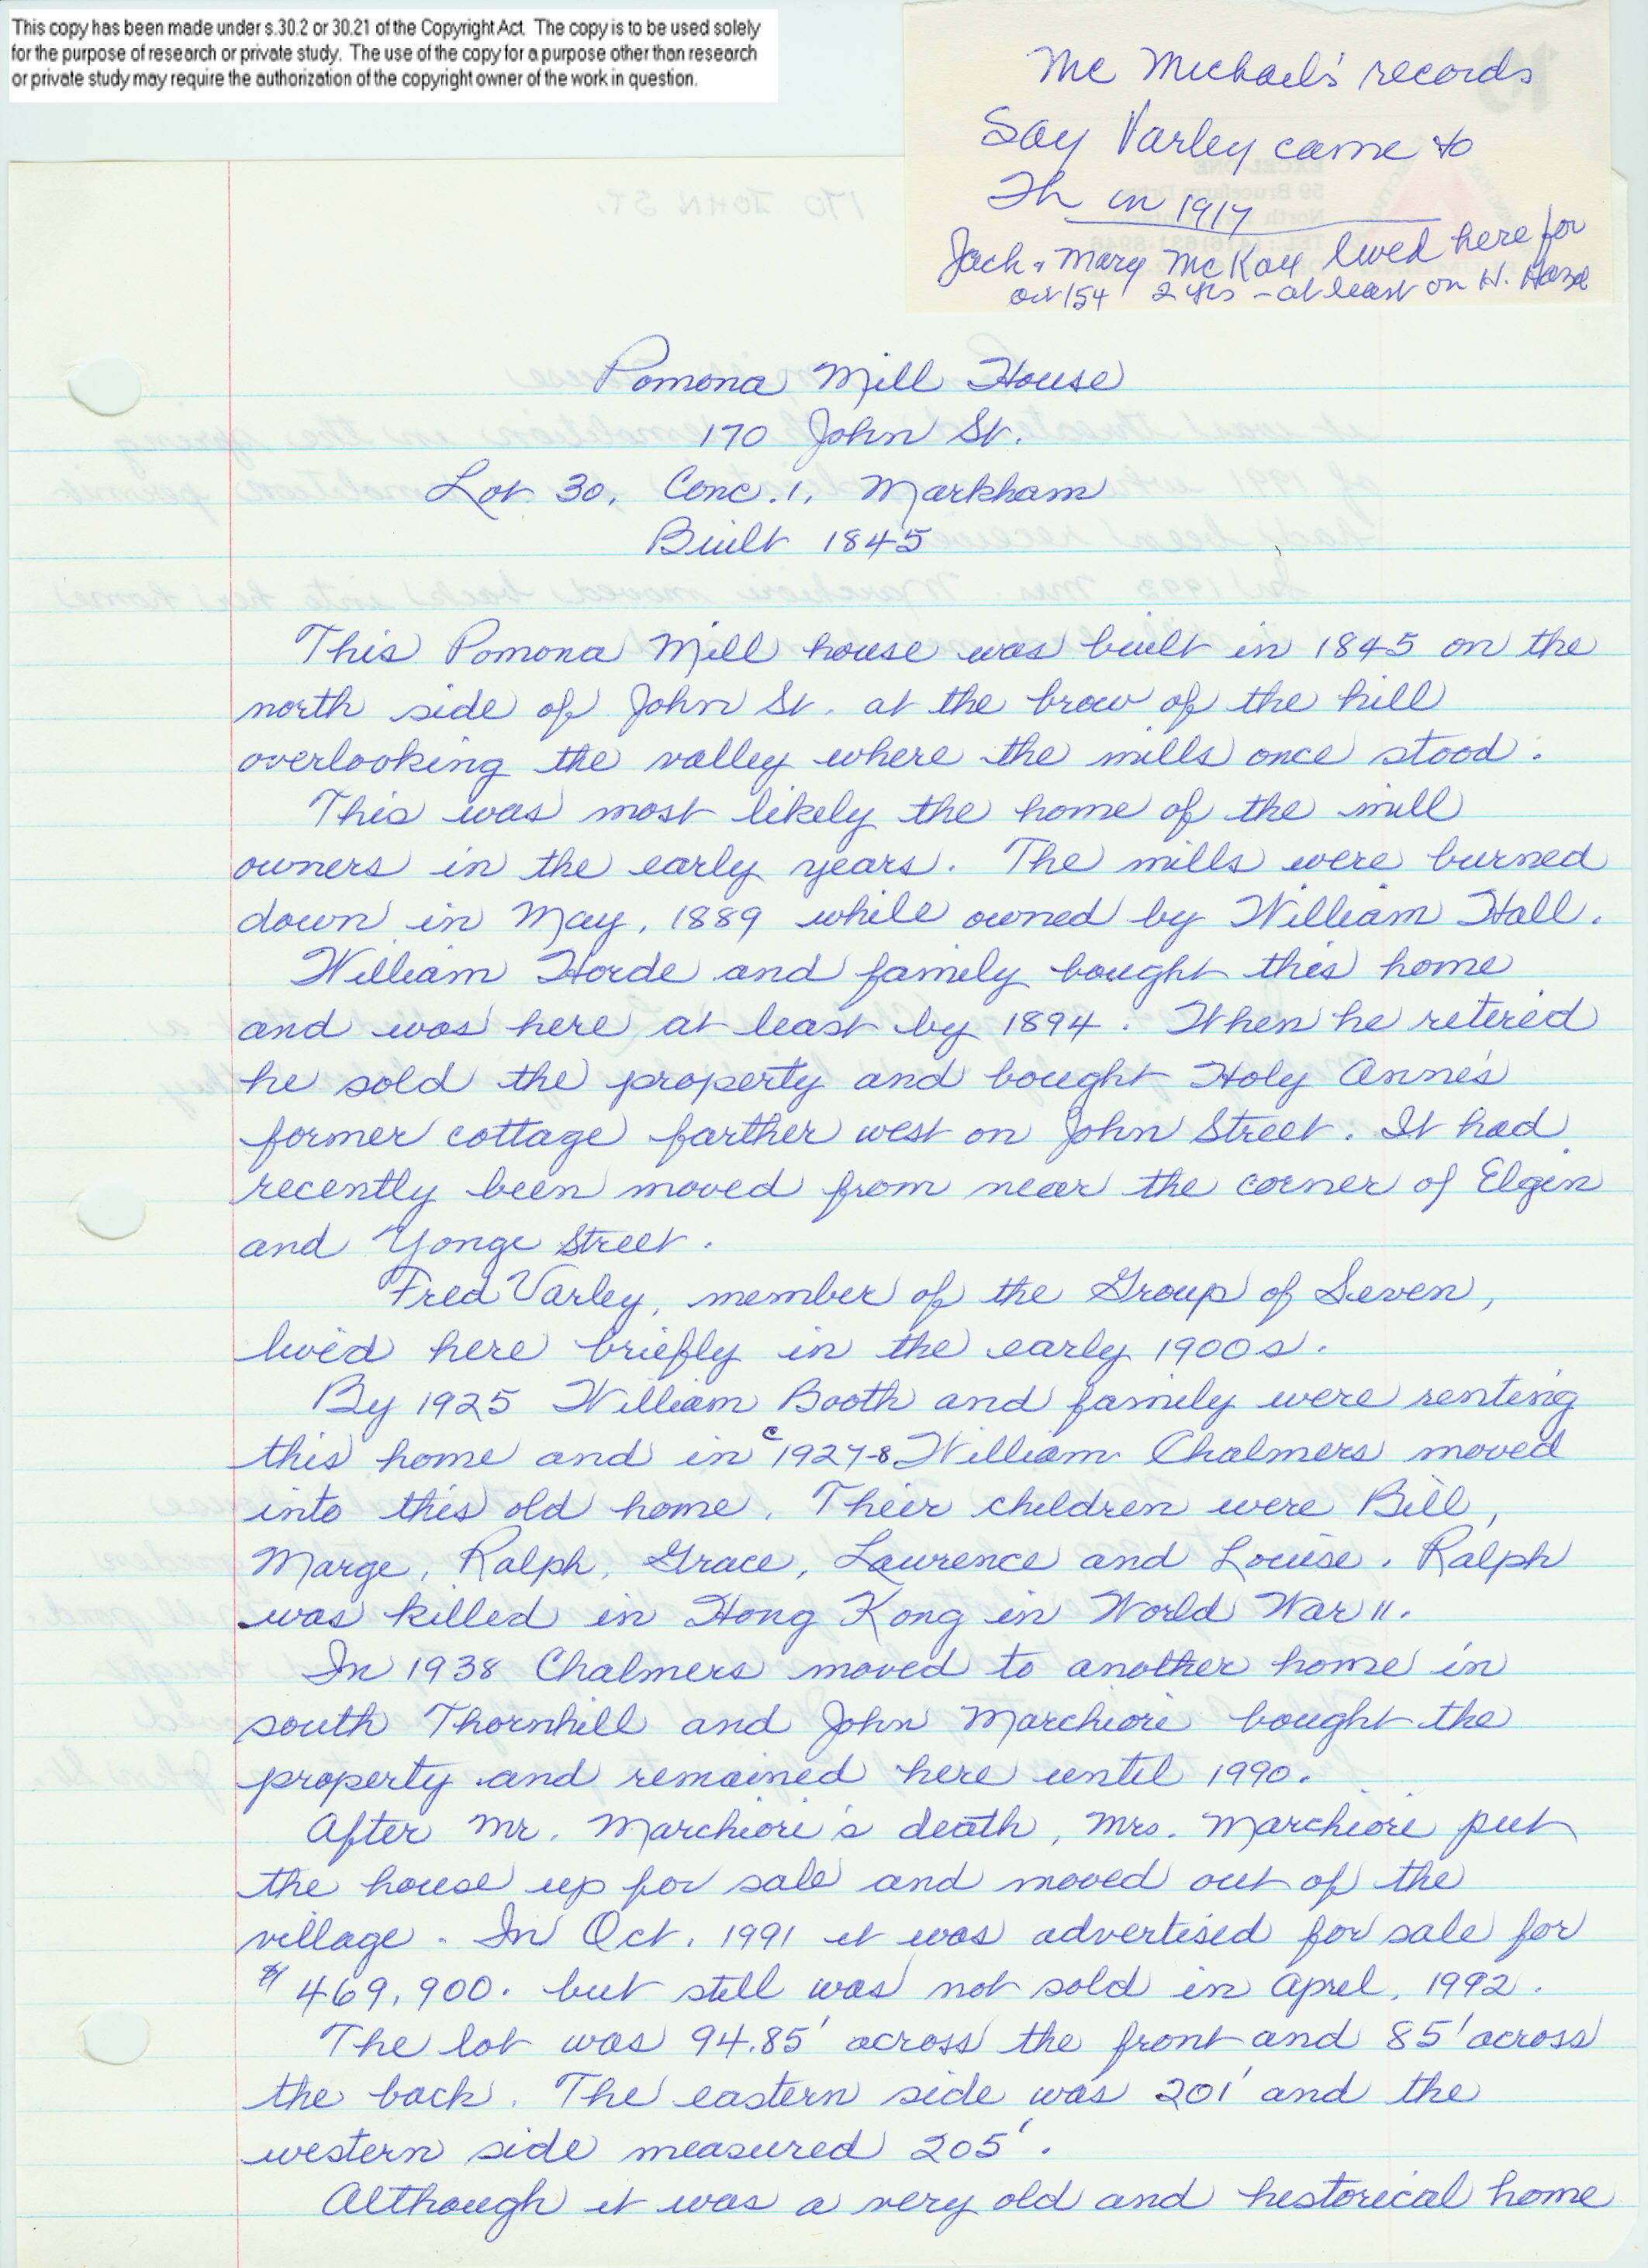 This copy has been made under s.30.2 or 30.21 of the Copyright Act. The copy is to be used solely
for the purpose of research or private study. The use of the copy for a purpose other than research
or private study may require the authorization of the copyright owner of the work in question.
Mc Michael's records
Say Varley came to
Th in 1917
Jack & Mary McKay lived here for
Oct/54 2 yrs - at least on H. Hazel
Pomona Mill House
170 John St.
Lot 30, Conc. 1, Markham
Built 1845
This Pomona Mill house was built in 1845 on the
north side of John St. at the brow of the hill
overlooking the valley where the mills once stood.
This was most likely the home of the mill
owners in the early years. The mills were burned
down in May, 1889 while owned by William Hall.
William Horde and family bought this home
and was here at least by 1894. When he retired
he sold the property and bought Holy Anne's
former cottage farther west on John Street. It had
recently been moved from near the corner of Elgin
and Yonge Street.
Fred Varley, member of the Group of Seven,
lived here briefly in the early 1900s.
By 1925 William Booth and family were renting
this home and in c1927-8 William Chalmers moved
into this old home. Their children were Bill,
Marge, Ralph, Grace, Lawrence and Louise. Ralph
was killed in Hong Kong in World War II.
In 1938 Chalmers moved to another home in
south Thornhill and John Marchiori bought the
property and remained here until 1990.
After Mr. Marchiori's death, Mrs. Marchiori put
the house up for sale and moved out of the
village. In Oct. 1991 it was advertised for sale for
$469,900. but still was not sold in April, 1992.
The lot was 94.85' across the front and 85' across
the back. The eastern side was 201' and the
western side measured 205'.
Although it was a very old and historical home